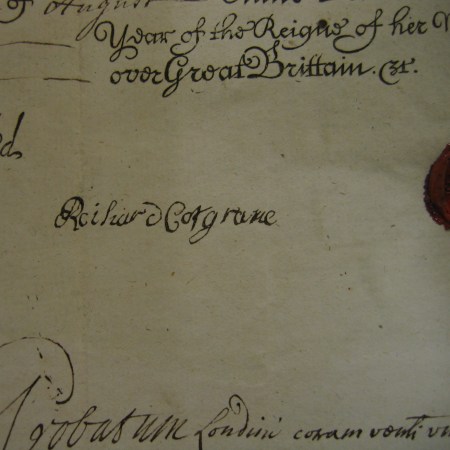 of August
Year of the Reigne of her
over Great Brittain. &c.
Reihard Cotgrane
Probatum Londini coram venli